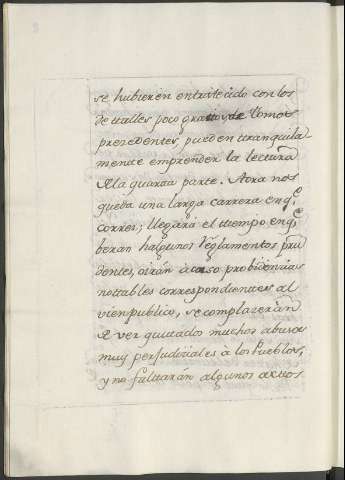 se hubieren entristecido con los
detalles poco gratos de Tomos
prezedentes, pueden tranquila
mente emprender la lectura
de la quarta parte. Aora nos
queda una larga carrera en q.e
correr; llegará el tiempo en q.e
beran halgunos reglamentos pru
dentes, oirán acaso probidencias
nottables correspondientes al
vien publico, se complazerán
de ver quitados muchos abusos
muy perjudiciales à los Pueblos,
y no faltarán algunos actos